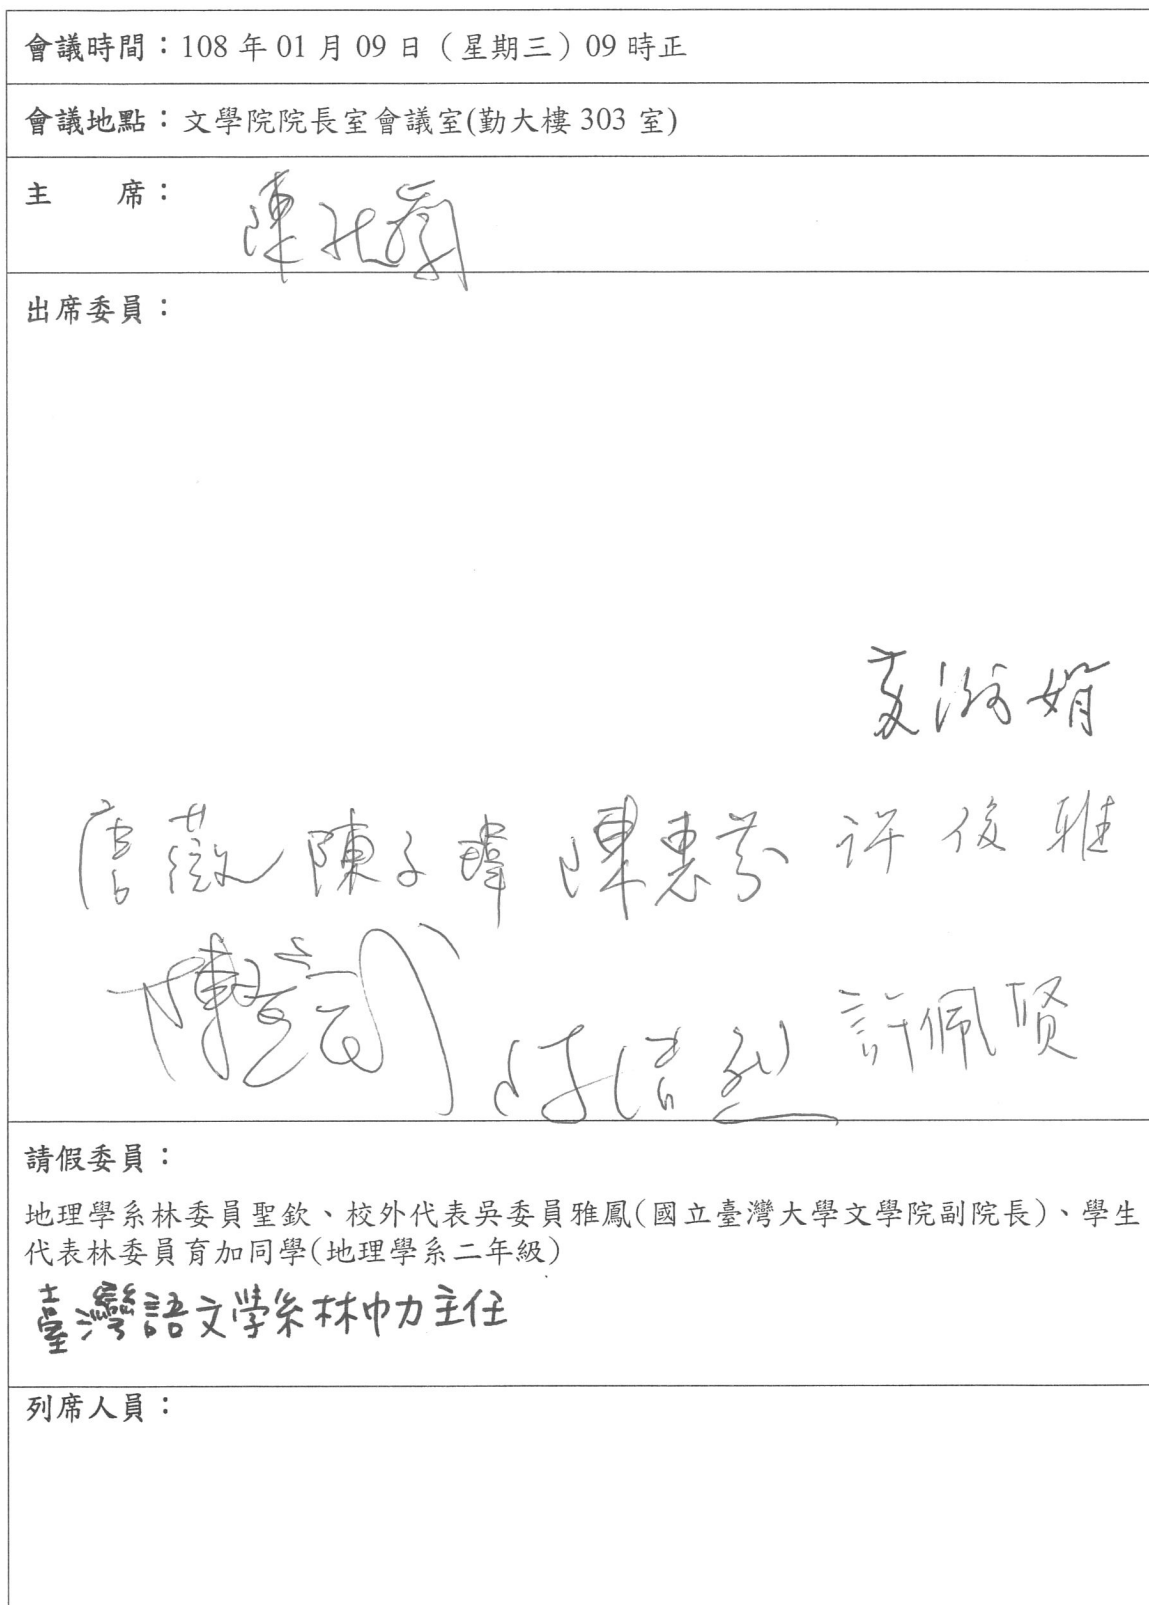 會議時間：108 年 01 月 09 日（星期三）09 時正
會議地點：文學院院長室會議室(勤大樓 303 室)
主　　席：
陳
出席委員：
娟
唐 薇 陳子瑋 陳惠芬 許俊雅
陳 許佩賢
請假委員：
地理學系林委員聖欽、校外代表吳委員雅鳳(國立臺灣大學文學院副院長)、學生
代表林委員育加同學(地理學系二年級)
臺灣語文学系林巾力主任
列席人員：